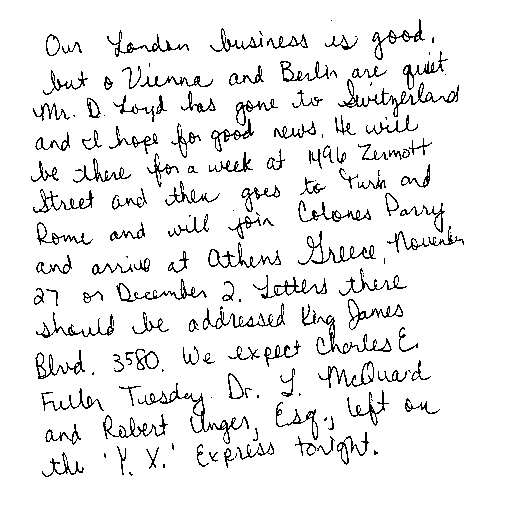 Our London business is good,
but o Vienna and Berlin are quiet
Mr. D. Loyd has gone to Switzerland
and I hope for good news. He will
be there for a week at 1496 Zermott
Street and then goes to Turin and
Rome and will join Colones Parry
and arrive at Athens Greece, November
27 or December 2. Letters there
should be addressed King James
Blvd. 3580. We expect Charles E.
Fuller Tuesday. Dr. L. McQuaid
and Robert Unger, Esq., left on
the 'Y. X.' Express tonight.